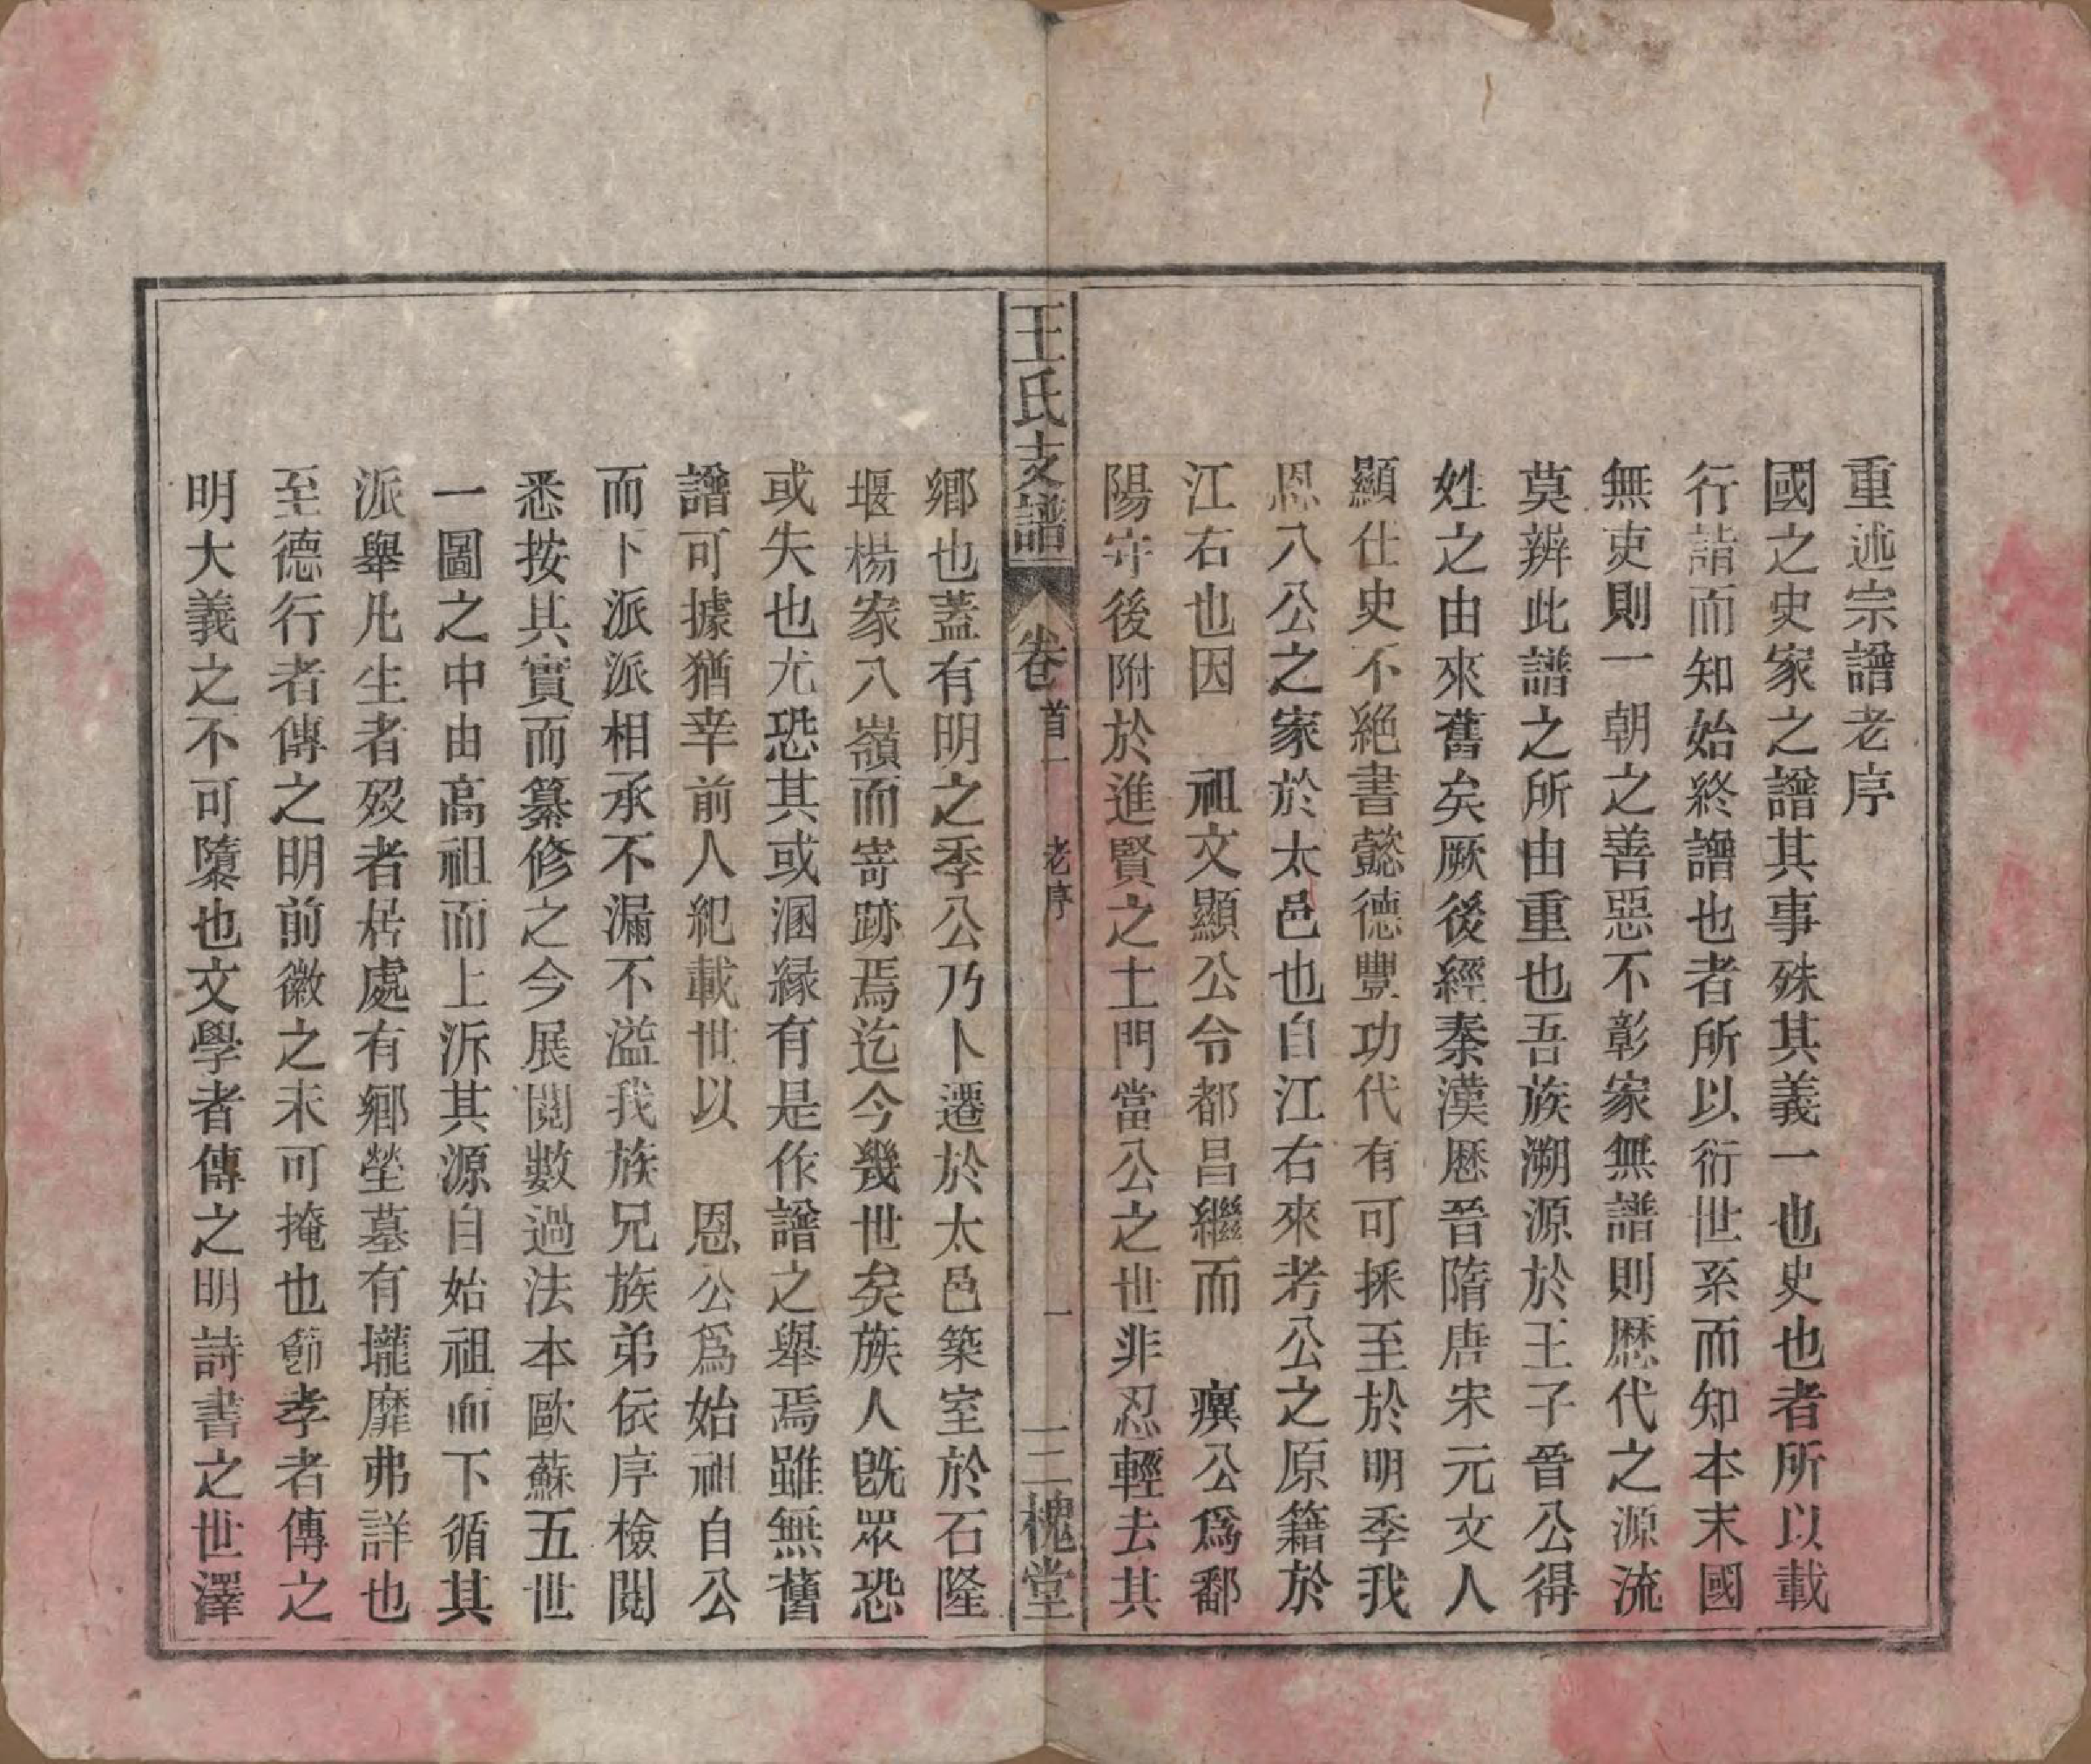 重述宗譜老序
國之史家之譜其事殊其義一也史也者所以載
行諳而知始終譜也者所以衍世系而知本末國
無吏則一朝之善惡不彰家無譜則歷代之源流
莫辨此譜之所由重也吾族溯源於王子晉公得
姓之由來舊矣厥後經秦漢歷晉隋唐宋元文人
顯仕史不絶書懿德豐功代有可採至於明季我
恩八公之家於太邑也自江右來考公之原籍於
江右也因　祖文顯公令都昌繼而　㻽公爲鄱
陽守後附於進賢之土門當公之世非忍輕去其
王氏支譜　卷首一　老序　一　三槐堂
鄉也蓋有明之季公乃卜遷於太邑築室於石隆
堰楊家八嶺而寄跡焉迄今幾世矣族人旣眾恐
或失也尤恐其或溷緣有是作譜之舉焉雖無舊
譜可據猶幸前人紀載世以　恩公爲始祖自公
而下派派相承不漏不溢我族兄族弟依序檢閱
悉按其實而纂修之今展閱數過法本歐蘇五世
一圖之中由高祖而上泝其源自始祖而下循其
派舉凡生者歿者居處有鄉塋墓有壠靡弗詳也
至德行者傳之明前徽之未可掩也節孝者傳之
明大義之不可隳也文學者傳之明詩書之世澤